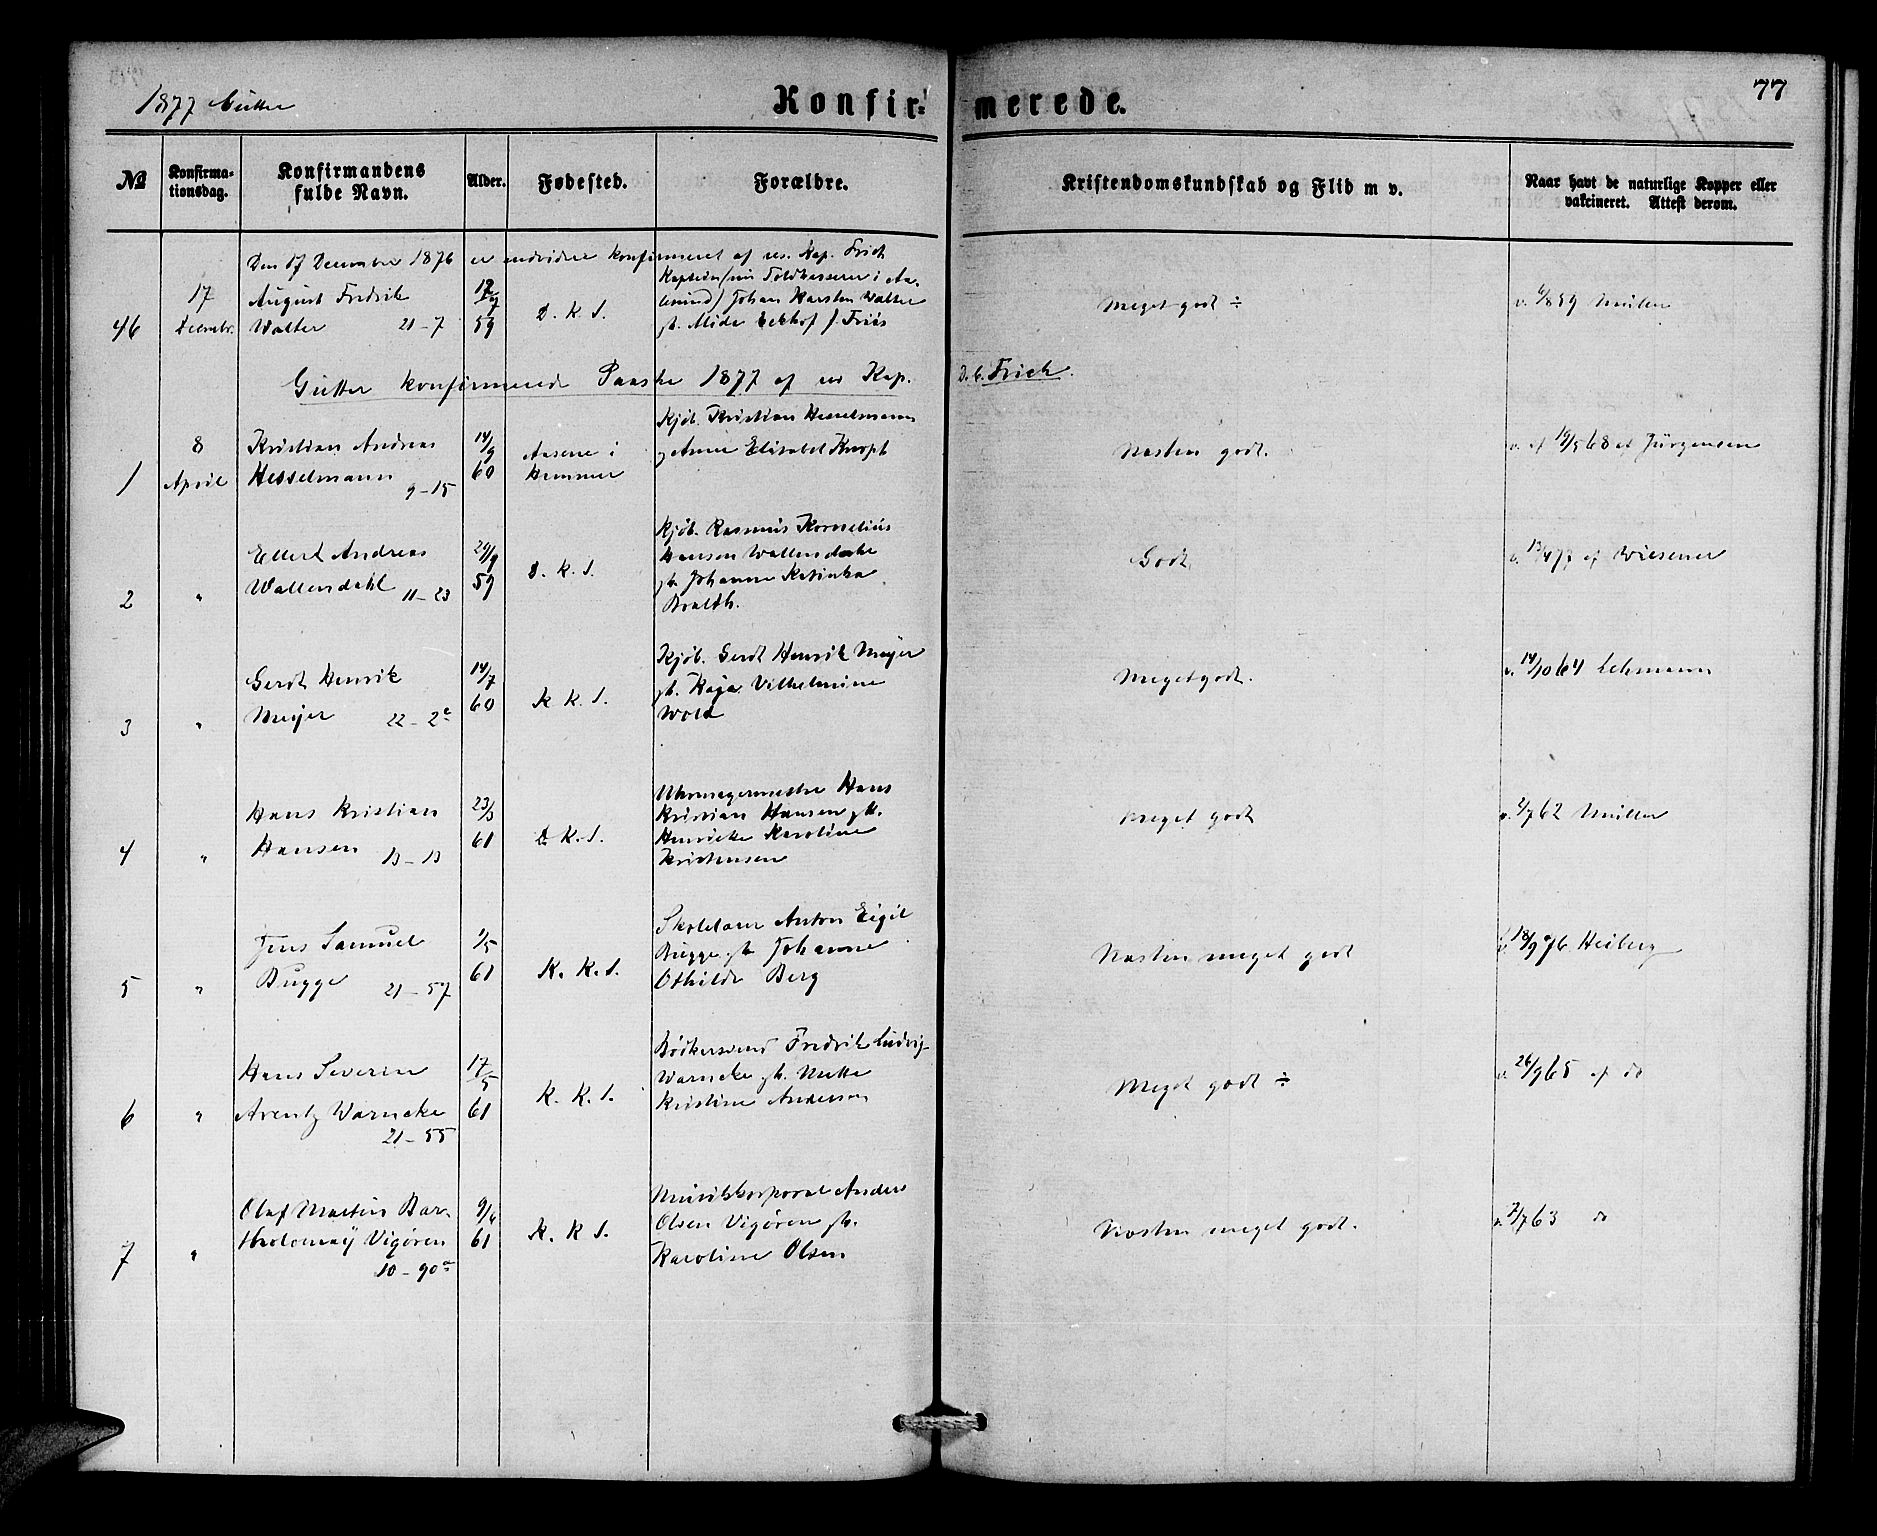 1877 Gutter
Konfir=
merede.
77
No
Konfirma-
tionsdag.
Konfirmandens
fulde Navn.
Alder.
Fødested.
Forældre.
Kristendomskundskab og Flid m v.
Naar havt de naturlige Kopper eller
vakcineret. Attest derom.
Den 17 December 1876 er endvidere konfirmeret af res. Kap. Frich
46
17
Decembr.
August Fredrik
Walter 21-7
12/7
59
D. K. S.
Johan Karsten Walter
Meget godt ÷
v. 6/8 59 Müller
Gutter konfirmerede Paaske 1877 af res Kap.
D. C. Frich.
1
8
April
Kristian Andreas
Hesselmann 9-15
14/9
60
Aasene i
Hemmer
Kjøb. Kristian Hesselmann
og Anne Elisabet Knoph
Næsten godt.
v. af 19/5 68 af Jürgensen
2
"
Ellert Andreas
Wallendahl 11-23
29/9
59
D. K. S.
Kjøb. Rasmus Kornelius
Hansen Wallendahl
gh. Johanne Katinka
Godt
v. 13/4 77 af Wiesener
3
"
Gerdt Henrik
Meyer 22-2a
14/7
60
K K. S.
Kjøb. Gerdt Henrik Meyer
gh. Kaja Vilhelmine
Wold
Meget godt.
v. 14/10 64 Lehmann
4
"
Hans Kristian
Hansen 13-13
23/3
61
D K. S.
Uhrmagermester Hans
Kristian Hansen gh.
Henricke Karoline
Kristensen
Meget godt
v. 2/7 62 Müller
5
"
Jens Samuel
Bugge 21-57
1/5
61
K. K. S.
Skolelærer Anton Eigil
Bugge gh Johanne
Othilde Berg
Næsten meget godt
v. 18/9 76 Heiberg
6
"
Hans Severin
Arentz Warncke
21-55
17/5
61
K. K. S.
Bødkersvend Fredrik Ludvig
Warncke gh. Mette
Kristine Anderson
Meget godt ÷
v. 26/9 65 af do
7
"
Olaf Martin Bar-
tholomæy Vigøren
10-90a
9/4
61
K. K S.
Musikkorporal Anders
Olsen Vigøren gh.
Karoline Olsen
Næsten meget godt.
v. 2/7 63 do